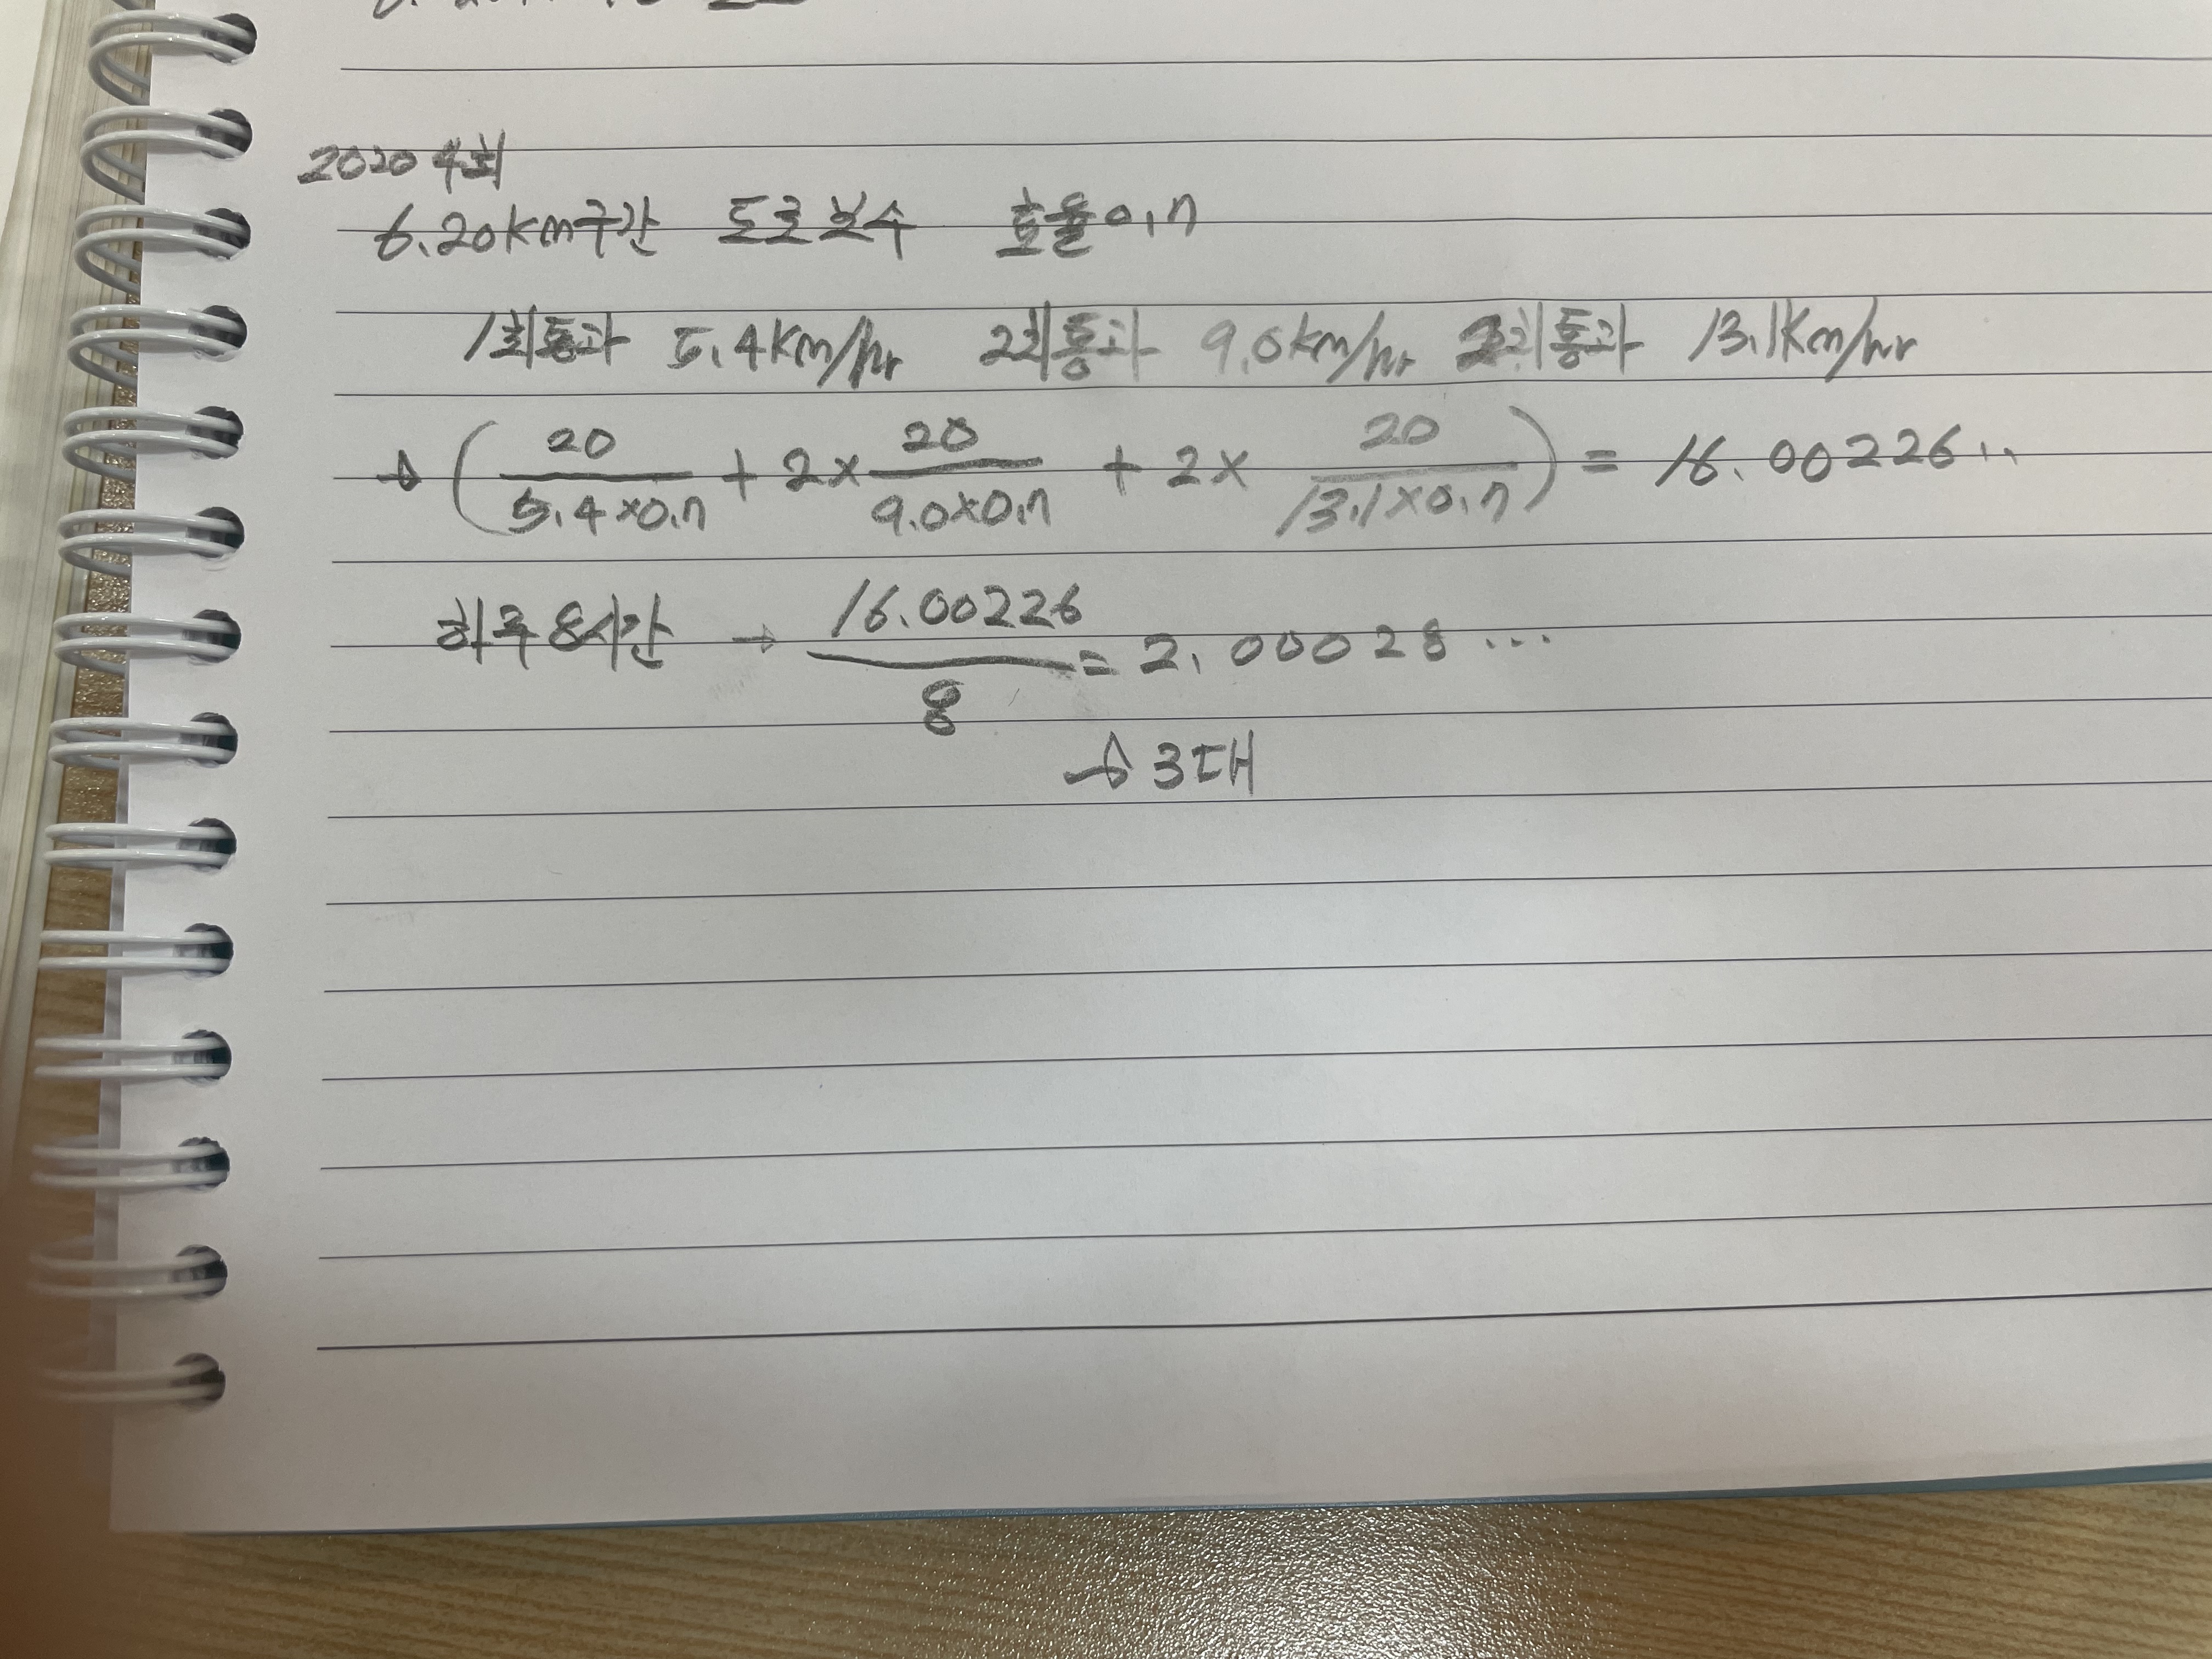 2020 4회
6. 20km구간 도로보수 효율0.7
1회통과 5.4km/hr 2회통과 9.0km/hr 2회통과 13.1km/hr
→ ( 20/5.4×0.7 + 2× 20/9.0×0.7 + 2× 20/13.1×0.7 ) = 16.00226..
하루 8시간 → 16.00226/8 = 2.00028...
→ 3대